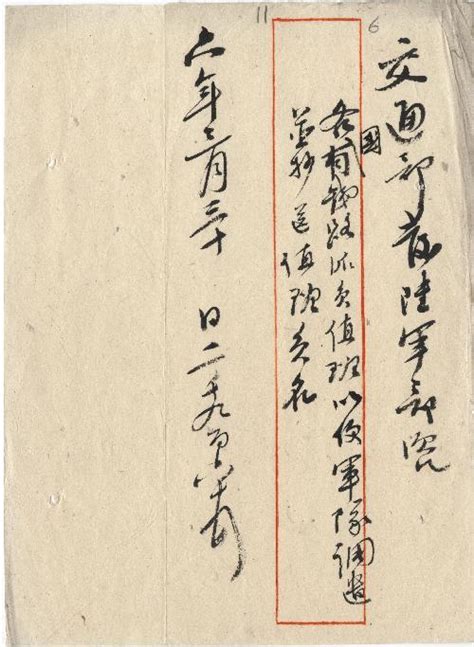 11
6
交通部發陸軍部咨
各國有鐵路派員值班以便軍隊調遣
並抄送值班員名
六年三月三十 日二千九百六十